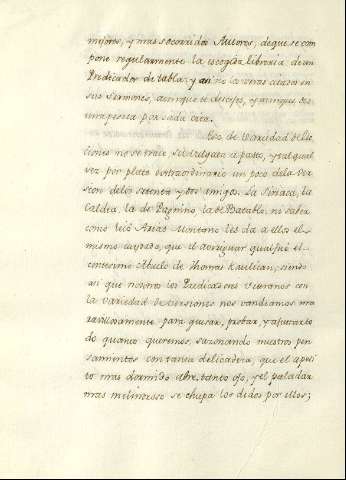 mejores, y mas socorridos Autores, de que se com
pone regularmente la escogida libreria de un
Predicador de tabla; y así no los veras citados en
sus Sermones, aunque te descojes, y aunque des
una peseta por cada cita.
Eso de variedad de lec
ciones no se trate, su vulgata a pasto, y tal qual
vez por plato extraordinario un poco de la ver
sion de los setenta y dos amigos. La Siriaca, la
Caldea, la de Pagnino, la de Batablo, ni saber
como leió Arias Montano les da a ellos el
mismo cuydado, que el averiguar qual fue el
centesimo Abuelo de Thomas Kaulican; siendo
así que nosotros los Predicadores Viteranos con
la variedad de versiones nos vandeamos ma
ravillosamente para guisar, probar, y
do quanto queremos, sazonando nuestros pen
samientos con tanta delicadeza, que el apeti
to mas dormido abre tanto ojo, y el paladar
mas melindroso se chupa los dedos por ellos;